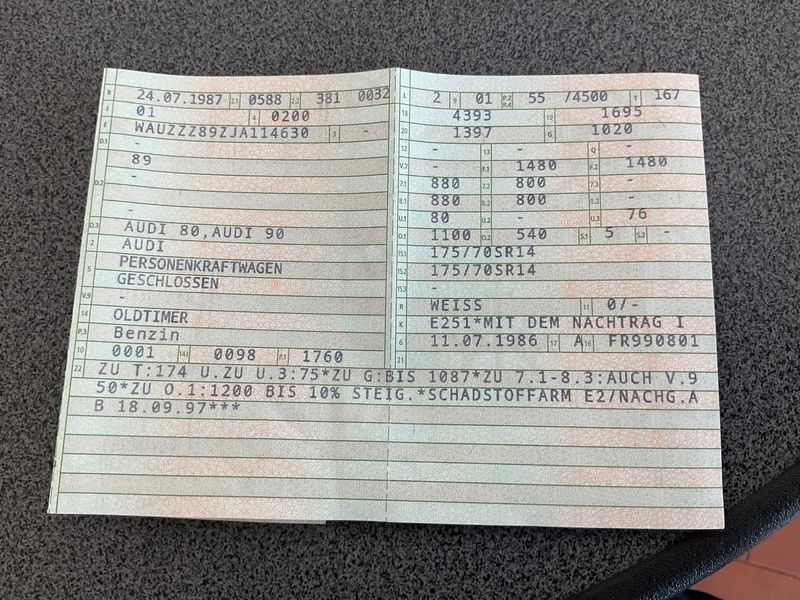 B 24.07.1987 2.1 0588 2.2 381 0032
J 01 4 0200
E WAUZZZ89ZJA114630 3 -
D.1 -
89
D.2 -
-
D.3 AUDI 80,AUDI 90
2 AUDI
5 PERSONENKRAFTWAGEN
GESCHLOSSEN
V.9 -
14 OLDTIMER
P.3 Benzin
10 0001 14.1 0098 P.1 1760
L 2 9 01 P.2 P.4 55 /4500 T 167
18 4393 19 1695
20 1397 G 1020
12 - 13 - Q -
V.7 - F.1 1480 F.2 1480
7.1 880 7.2 800 7.3 -
8.1 880 8.2 800 8.3 -
U.1 80 U.2 - U.3 76
O.1 1100 O.2 540 S.1 5 S.2 -
15.1 175/70SR14
15.2 175/70SR14
15.3 -
R WEISS 11 0/-
K E251*MIT DEM NACHTRAG I
6 11.07.1986 17 A 16 FR990801
21
22 ZU T:174 U.ZU U.3:75*ZU G:BIS 1087*ZU 7.1-8.3:AUCH V.9
50*ZU O.1:1200 BIS 10% STEIG.*SCHADSTOFFARM E2/NACHG.A
B 18.09.97***